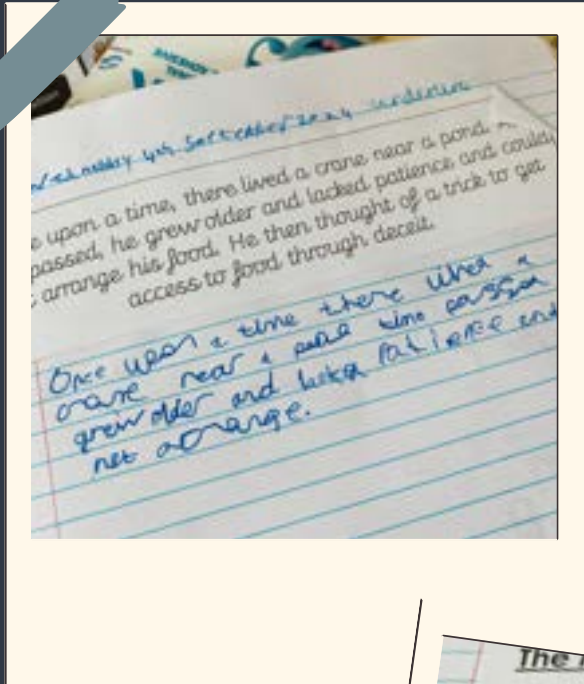 4th September 2024 underline
upon a time, there lived a crane near a pond.
passed, he grew older and lacked patience and could
arrange his food. He then thought of a trick to get
access to food through deceit.
Once upon a time there lived a
crane near a time passed
grew older and patience and
not arrange.
The